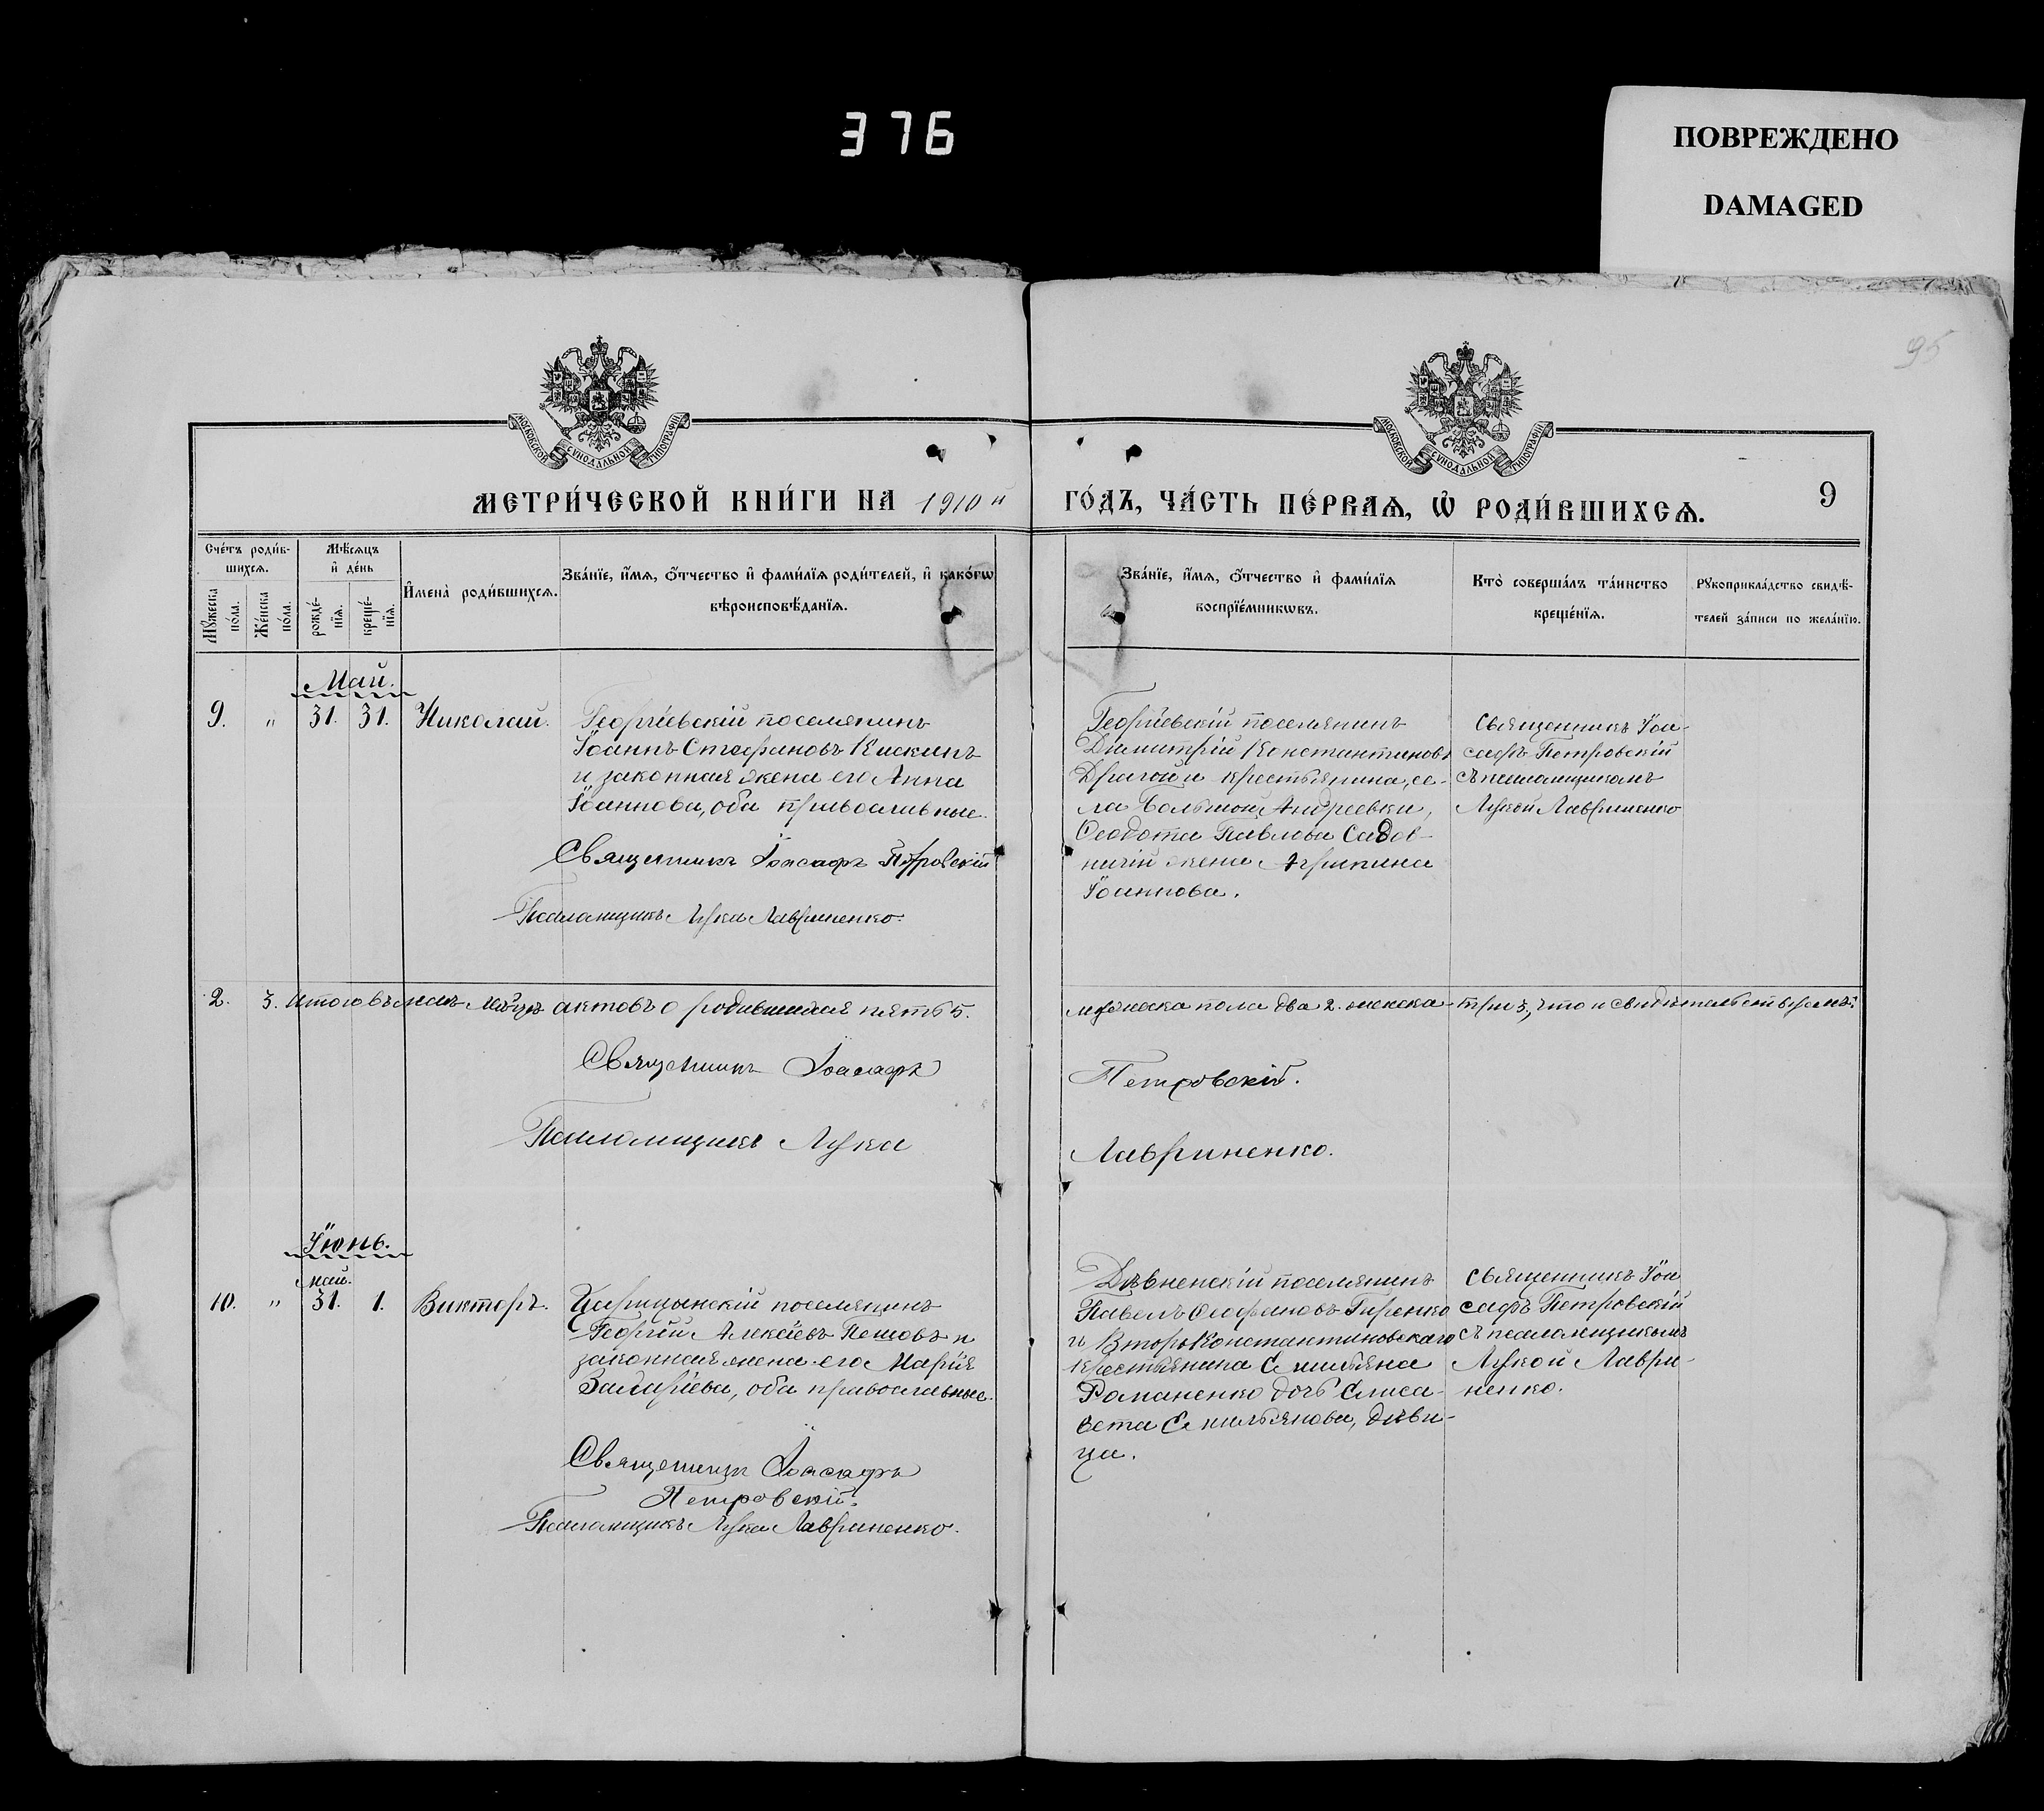 376
ПОВРЕЖДЕНО
DAMAGED
95
МОСКОВСКОЙ СѴНОДАЛЬНОЙ ТИПОГРАФІИ
МОСКОВСКОЙ СѴНОДАЛЬНОЙ ТИПОГРАФІИ
МЕТРИ́ЧЕСКОЙ КНИ́ГИ НА 1910й
ГО́ДЪ, ЧА́СТЬ ПЕ́РВАѦ, Ѡ҆ РОДИ́ВШИХСѦ.
9
Сче́тъ роди́в-
шихсѧ.
Мꙋ́жеска по́ла.
Же́нска по́ла.
Мѣ́сѧцъ
и҆ де́нь
рожде́-
нїѧ.
креще́-
нїѧ.
И҆мена̀ роди́вшихсѧ.
Зва́нїе, и҆́мѧ, ѻ҆́тчество и҆ фами́лїѧ роди́телей, и҆ како́гѡ
вѣроисповѣ́данїѧ.
Зва́нїе, и҆́мѧ, ѻ҆́тчество и҆ фами́лїѧ
воспрїе́мникѡвъ.
Кто̀ соверша́лъ та́инство
креще́нїѧ.
Рꙋкоприкла́дство свидѣ́-
телей за́писи по жела́нїю.
Май.
9. " 31. 31. Николай.
Георгіевскій поселянинъ
Іоаннъ Стефановъ
и законная жена его Анна
Іоаннова, оба православные.
Священникъ Іоасафъ Петровскій
Псаломщикъ Лука Лавриненко.
Георгіевскій поселянинъ
Димитрій Константиновъ
Драгой и крестьянина се-
ла Большой Андреевки,
Ѳеодота Павлова Садов-
ничій жена Агрипина
Іоаннова.
Священникъ Іоа-
сафъ Петровскій
съ псаломщикомъ
Лукой Лавриненко
2. 3. Итого въ маѣ мѣсяцѣ актовъ о родившихся пять 5.
мужеска пола два 2. женска три 3, что и свидѣтельствуемъ:
Священникъ Іоасафъ
Петровскій.
Псаломщикъ Лука
Лавриненко.
Іюнь.
май.
10. " 31. 1. Викторъ.
Царицынскій поселянинъ
Георгій Алексѣевъ Пешовъ и
законная жена его Марія
Захаріева, оба православные.
Священникъ Іоасафъ
Петровскій.
Псаломщикъ Лука Лавриненко.
Дѣвненскій поселянинъ
Павелъ Ѳеофановъ Гиренко
и Второ Константиновскаго
крестьянина Емиліана
Романенко дочь Елиса-
вета Емиліянова, дѣви-
ца.
Священникъ Іоа
сафъ Петровскій
съ псаломщикомъ
Лукой Лаври-
ненко.